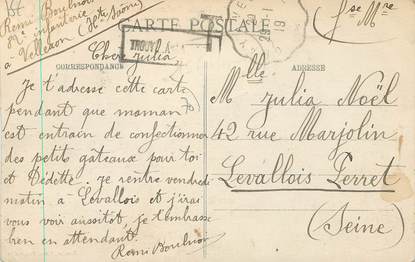 Remi Boulnois
82e infanterie
a Vellexon (Hte Saône)
CARTE POSTALE
Fse Mre
TROUVÉ A
29-1
19
CORRESPONDANCE
ADRESSE
Chère Julia
Je t'adresse cette carte
pendant que maman
est entrain de confectionner
des petits gateaux pour toi
et Dédette. Je rentre vendredi
matin a Levallois et j'irai
vous voir aussitot, je t'embrasse
bien en attendant.
Remi Boulnois
Mlle Julia Noël
42 rue Marjolin
Levallois Perret
(Seine)